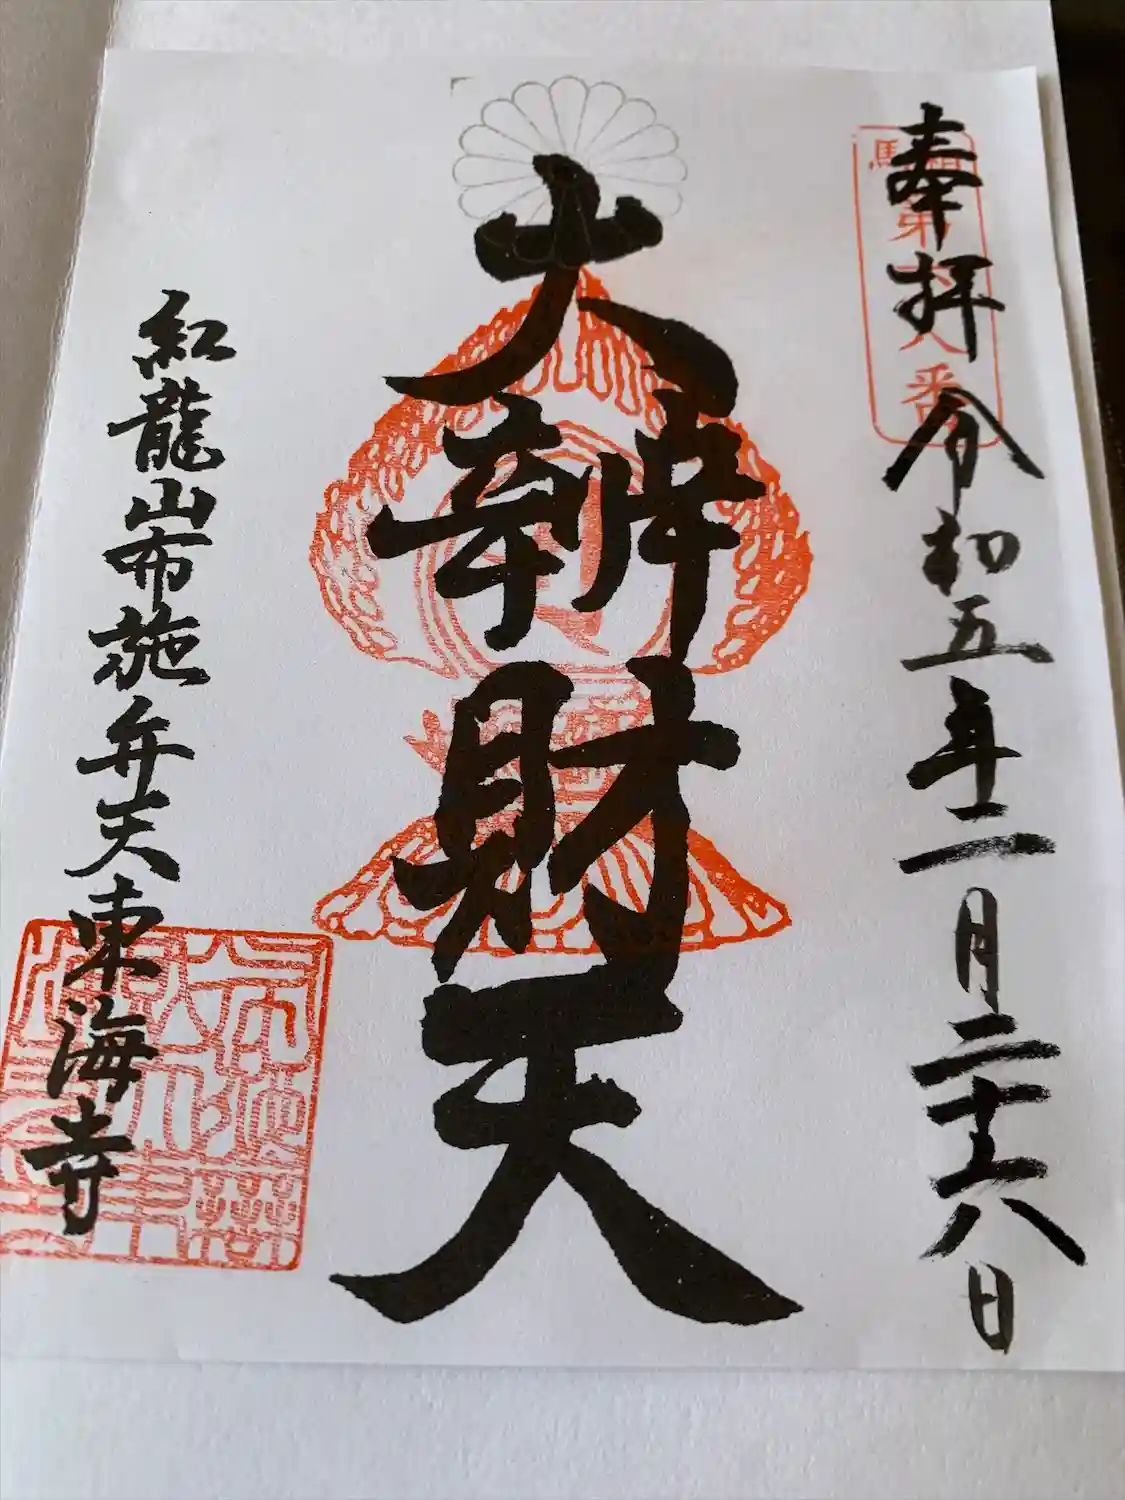 奉拝 令和五年二月二十六日
大辨財天
紅龍山布施弁天東海寺